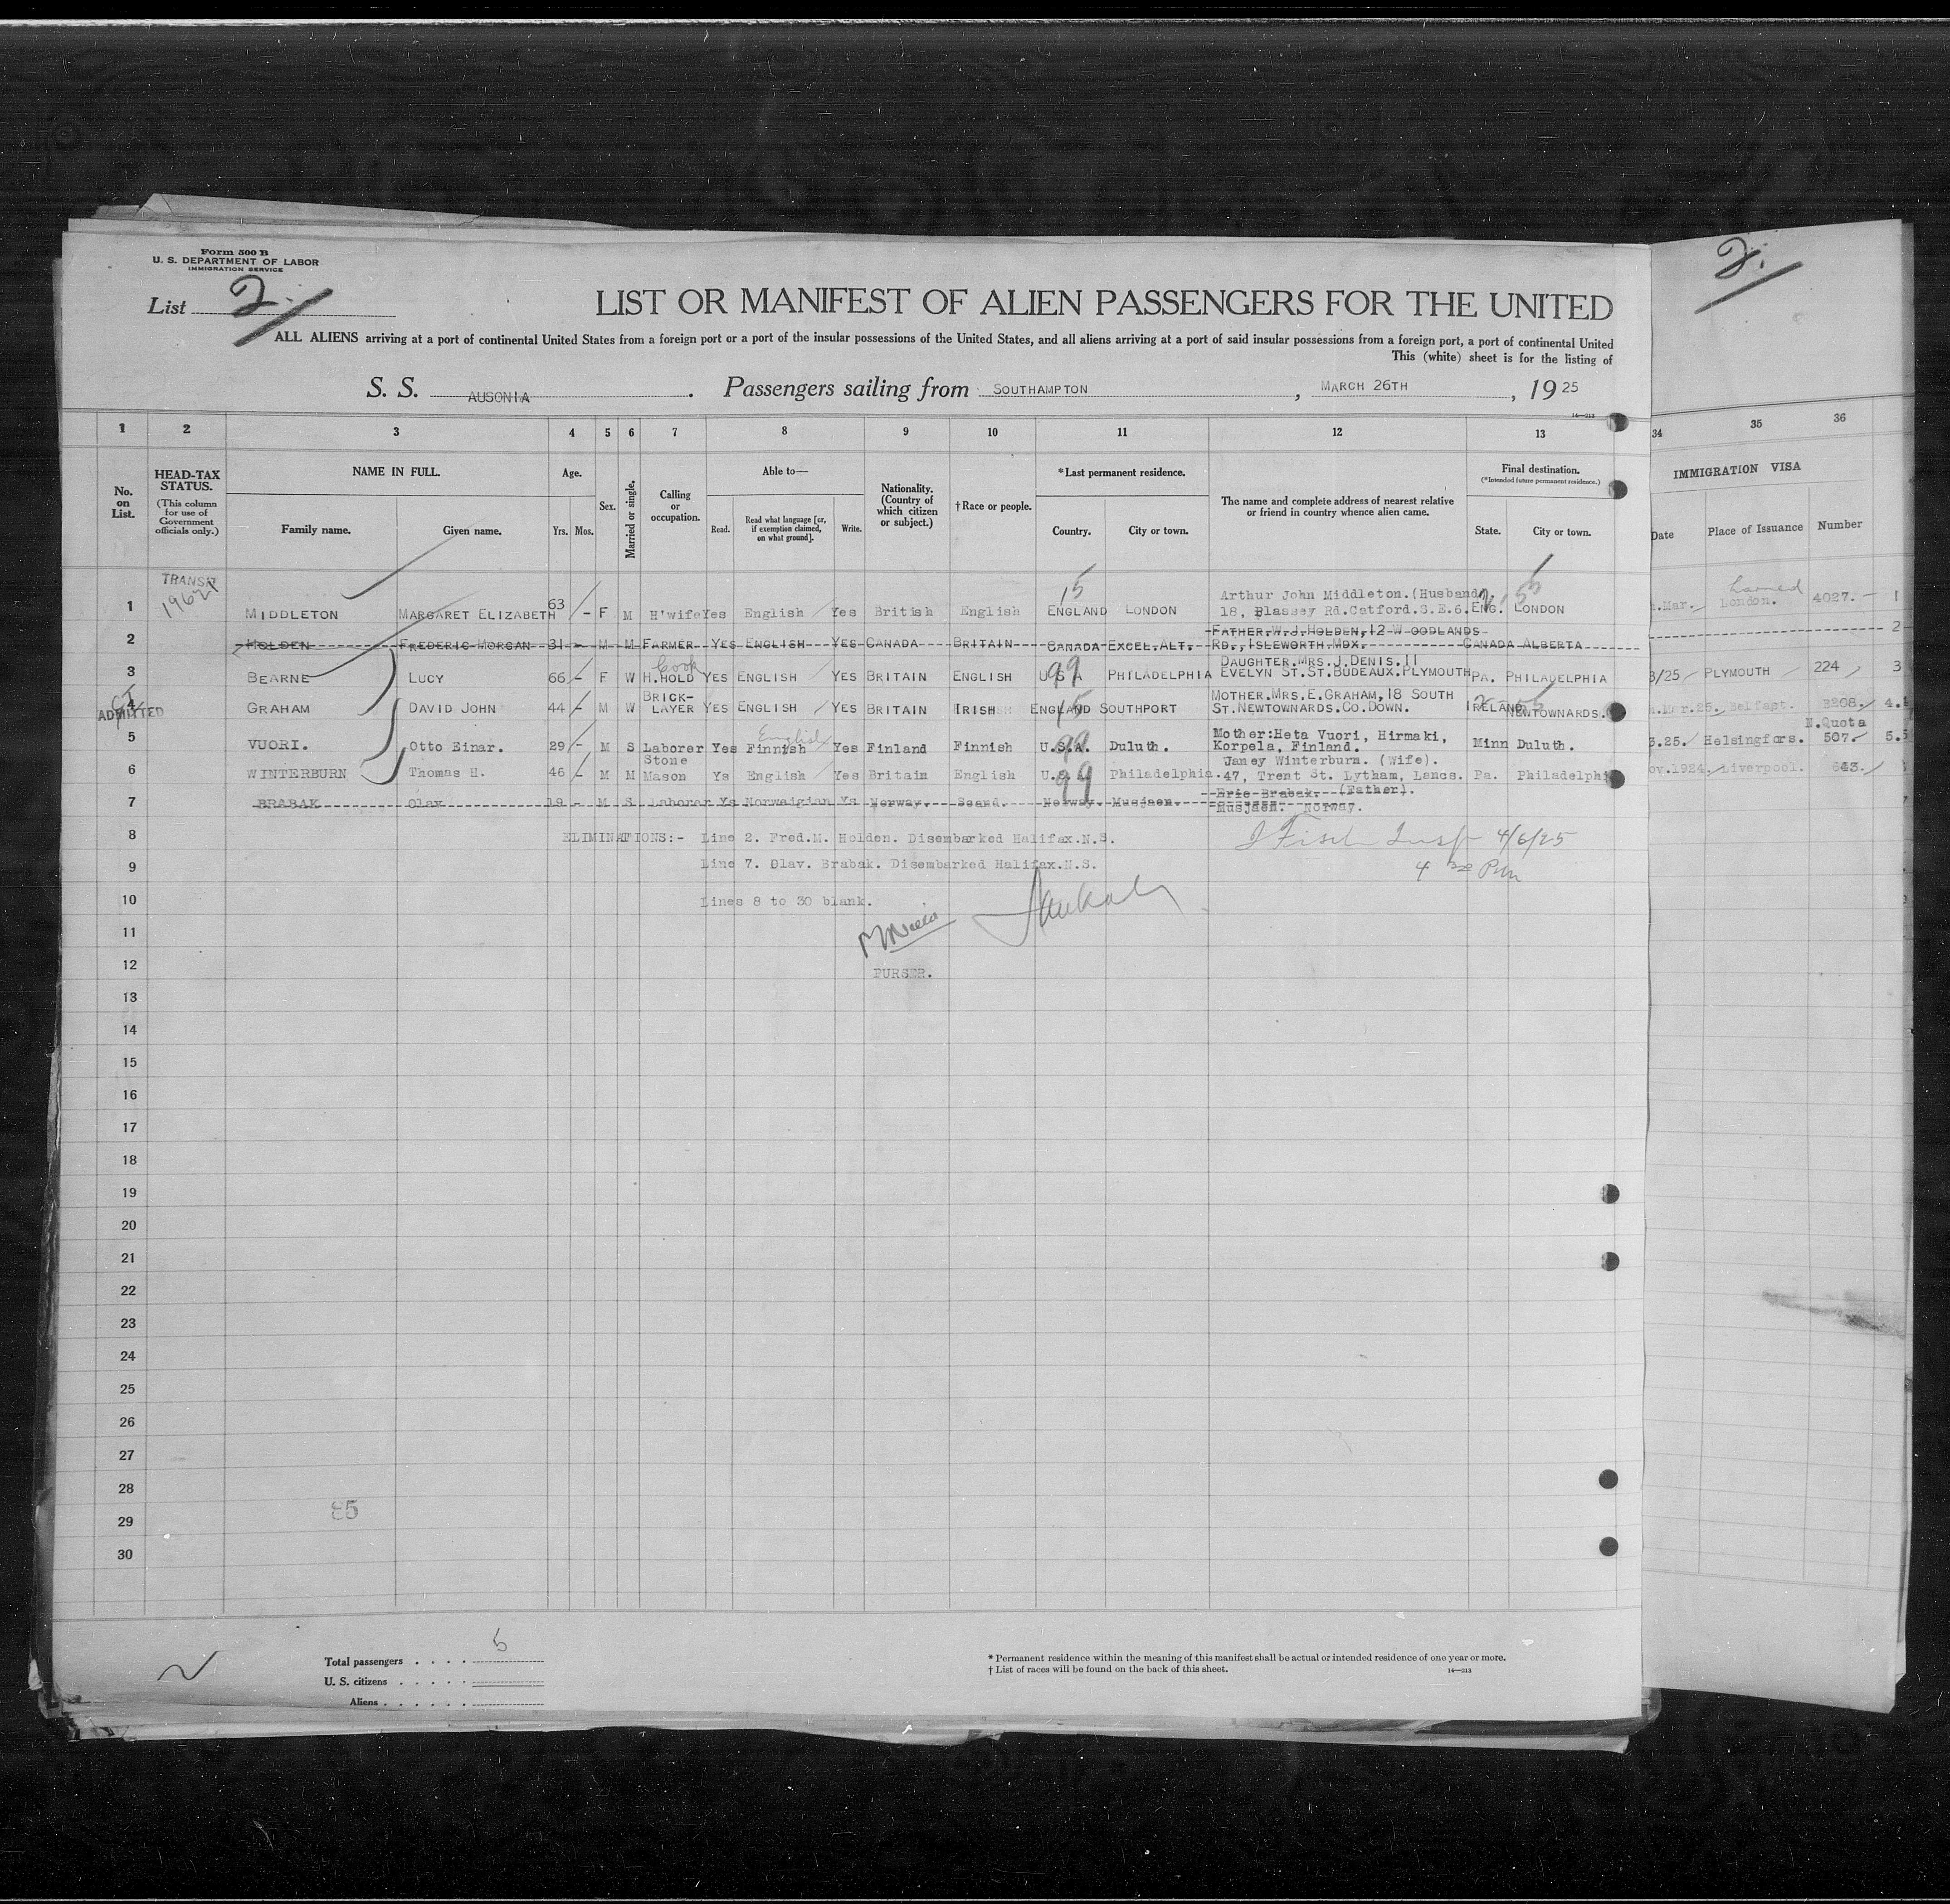 Form 500 B
U. S. DEPARTMENT OF LABOR
IMMIGRATION SERVICE
List 2.
2.
LIST OR MANIFEST OF ALIEN PASSENGERS FOR THE UNITED
ALL ALIENS arriving at a port of continental United States from a foreign port or a port of the insular possessions of the United States, and all aliens arriving at a port of said insular possessions from a foreign port, a port of continental United
This (white) sheet is for the listing of
S. S. AUSONIA. Passengers sailing from SOUTHAMPTON, MARCH 26TH, 1925
14—213
1 2 3 4 5 6 7 8 9 10 11 12 13 34 35 36
No. on List.
HEAD-TAX STATUS.
(This column for use of Government officials only.)
NAME IN FULL.
Family name. Given name.
Age.
Yrs. Mos.
Sex.
Married or single.
Calling or occupation.
Able to—
Read. Read what language [or, if exemption claimed, on what ground]. Write.
Nationality. (Country of which citizen or subject.)
†Race or people.
*Last permanent residence.
Country. City or town.
The name and complete address of nearest relative or friend in country whence alien came.
Final destination.
(*Intended future permanent residence.)
State. City or town.
IMMIGRATION VISA
Date Place of Issuance Number
TRANSIT
15
1 MIDDLETON MARGARET ELIZABETH 63 - F M H'wife Yes English Yes British English ENGLAND LONDON Arthur John Middleton.(Husband). 18, Blassey Rd.Catford.S.E.6. ENG. LONDON .Mar. London. 4027.- 1
2 HOLDEN FREDERIC MORGAN 31 - M M FARMER YES ENGLISH YES CANADA BRITAIN CANADA EXCEL.ALT. FATHER.W.J.HOLDEN,12 WOODLANDS RD.,ISLEWORTH.MDX. CANADA ALBERTA 2
3 BEARNE LUCY 66 - F W Cook H.HOLD YES ENGLISH YES BRITAIN ENGLISH U S A 99 PHILADELPHIA DAUGHTER.MRS.J.DENIS.11 EVELYN ST.ST.BUDEAUX.PLYMOUTH PA. PHILADELPHIA 3/25 PLYMOUTH 224 3
ADMITTED
4 GRAHAM DAVID JOHN 44 - M W BRICK-LAYER YES ENGLISH YES BRITAIN IRISH ENGLAND SOUTHPORT MOTHER.MRS.E.GRAHAM,18 SOUTH ST.NEWTOWNARDS.CO.DOWN. IRELAND NEWTOWNARDS. .Mar.25. Belfast. 3208. 4.
N.Quota
5 VUORI. Otto Einar. 29 - M S Laborer Yes Finnish English Yes Finland Finnish U.S.A. 99 Duluth. Mother:Heta Vuori, Hirmaki, Korpela, Finland. Minn Duluth. 3.25. Helsingfors. 507. 5.
6 WINTERBURN Thomas H. 46 - M M Stone Mason Ys English Yes Britain English U.S.A 99 Philadelphia. Janey Winterburn. (Wife). 47, Trent St. Lytham, Lancs. Pa. Philadelphi ov.1924. Liverpool. 643.
7 BRABAK Olav 19 - M S Laborer Ys Norweigian Ys Norway. Scand. Norway. Musjaen. Eric Brabak. (Father). Musjaen. Norway.
8 ELIMINATIONS:- Line 2. Fred.M. Holden. Disembarked Halifax.N.S. Insp 4/6/25
9 Line 7. Olav. Brabak. Disembarked Halifax.N.S. 4 30 Pm
10 Lines 8 to 30 blank.
11
12 PURSER.
13
14
15
16
17
18
19
20
21
22
23
24
25
26
27
28
29
30
Total passengers . . . . 5
U. S. citizens . . . . .
Aliens . . . . . .
* Permanent residence within the meaning of this manifest shall be actual or intended residence of one year or more.
† List of races will be found on the back of this sheet. 14—213